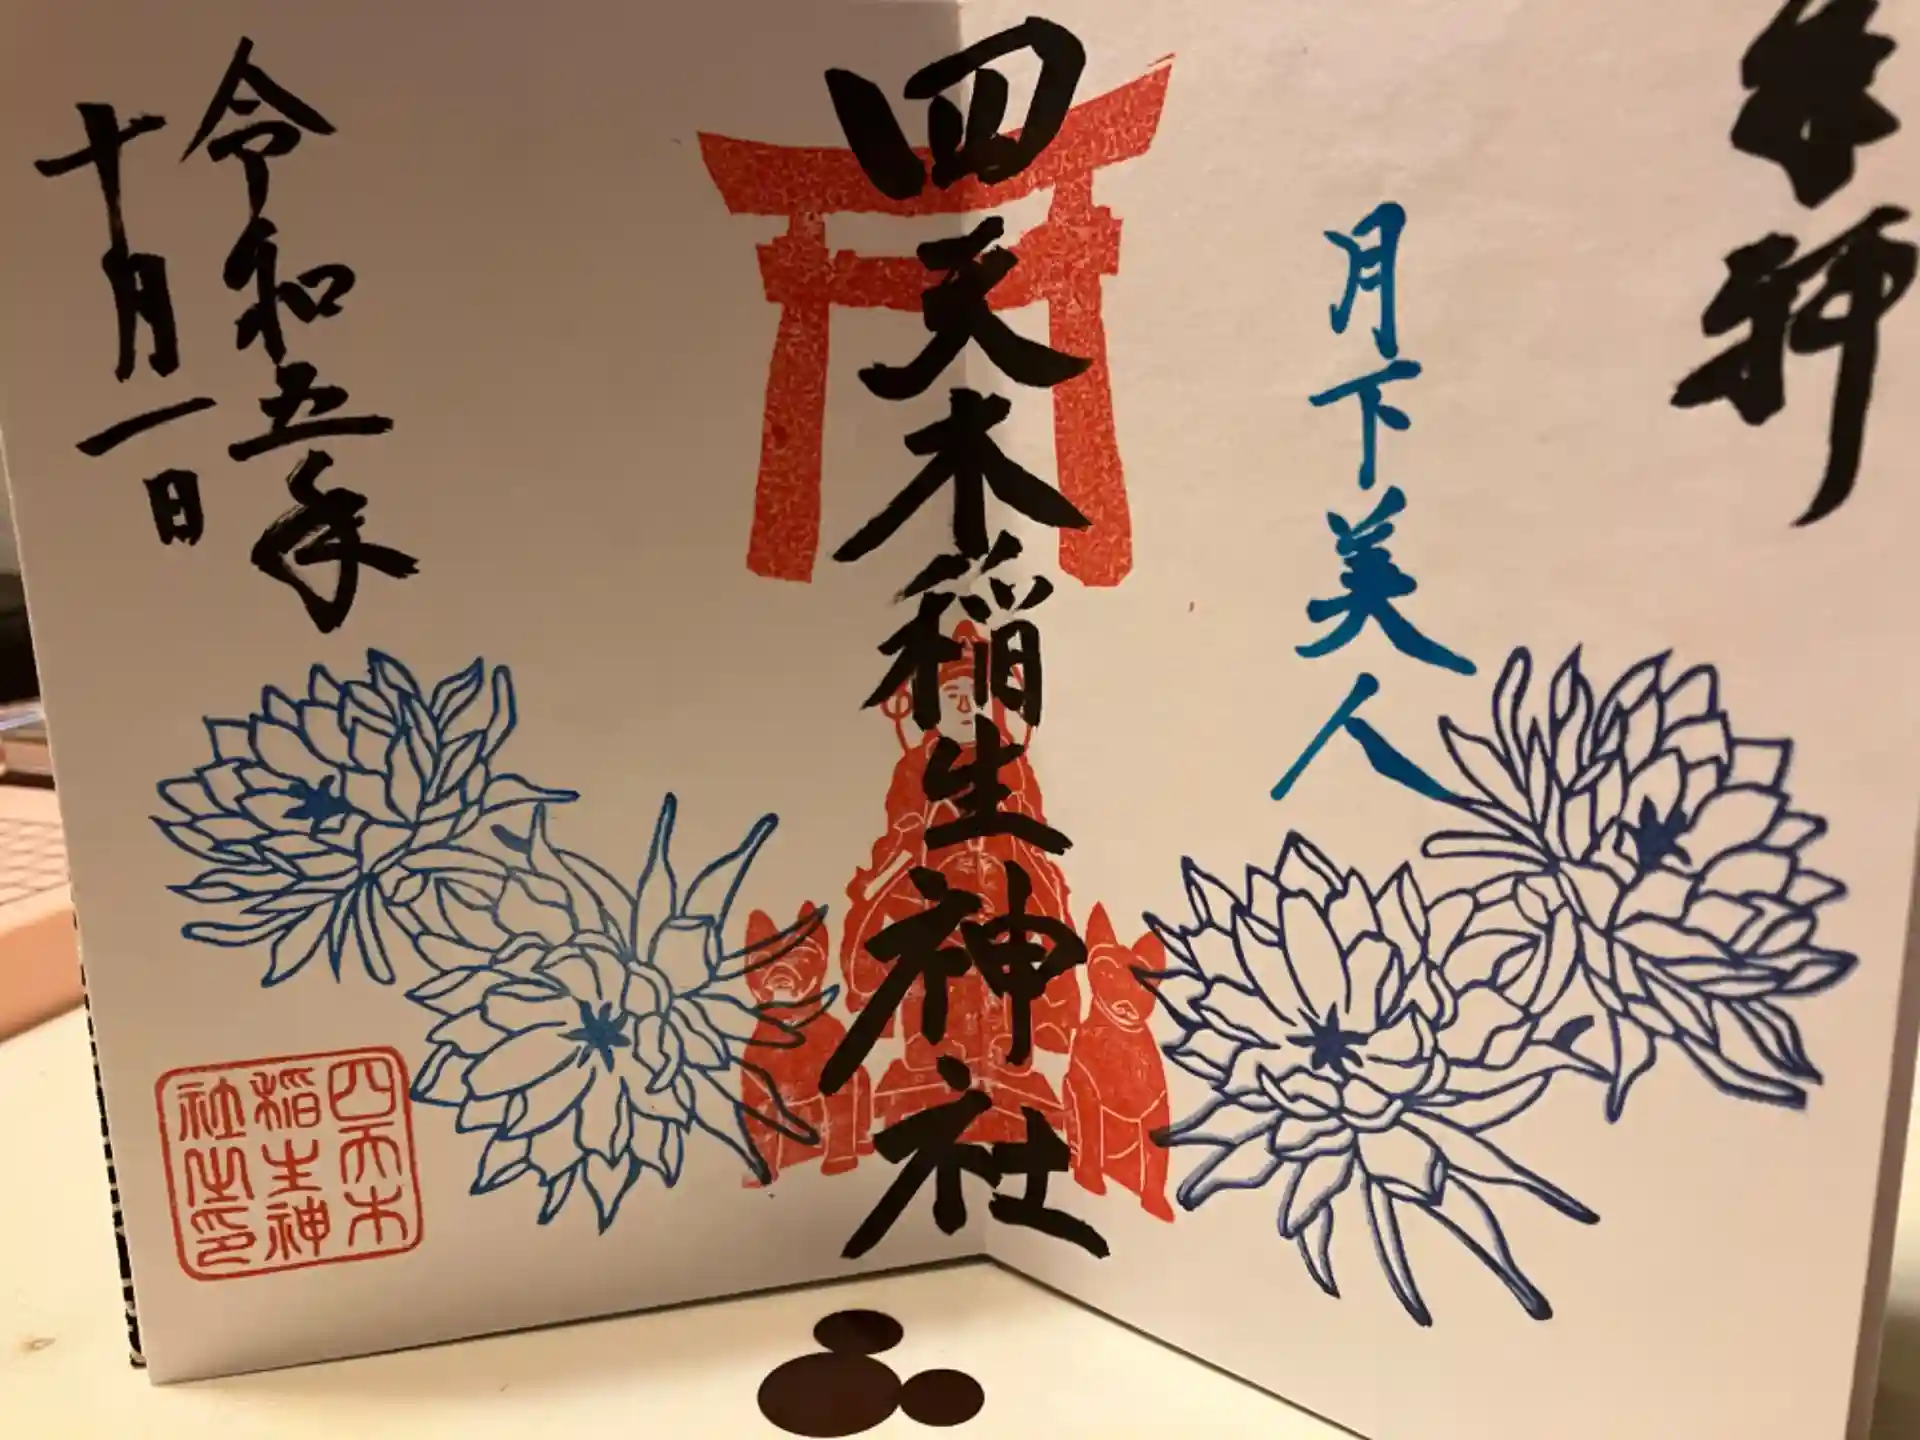 奉拝
月下美人
四天木稲生神社
令和五年
十月一日
四天木
稲生神
社之印